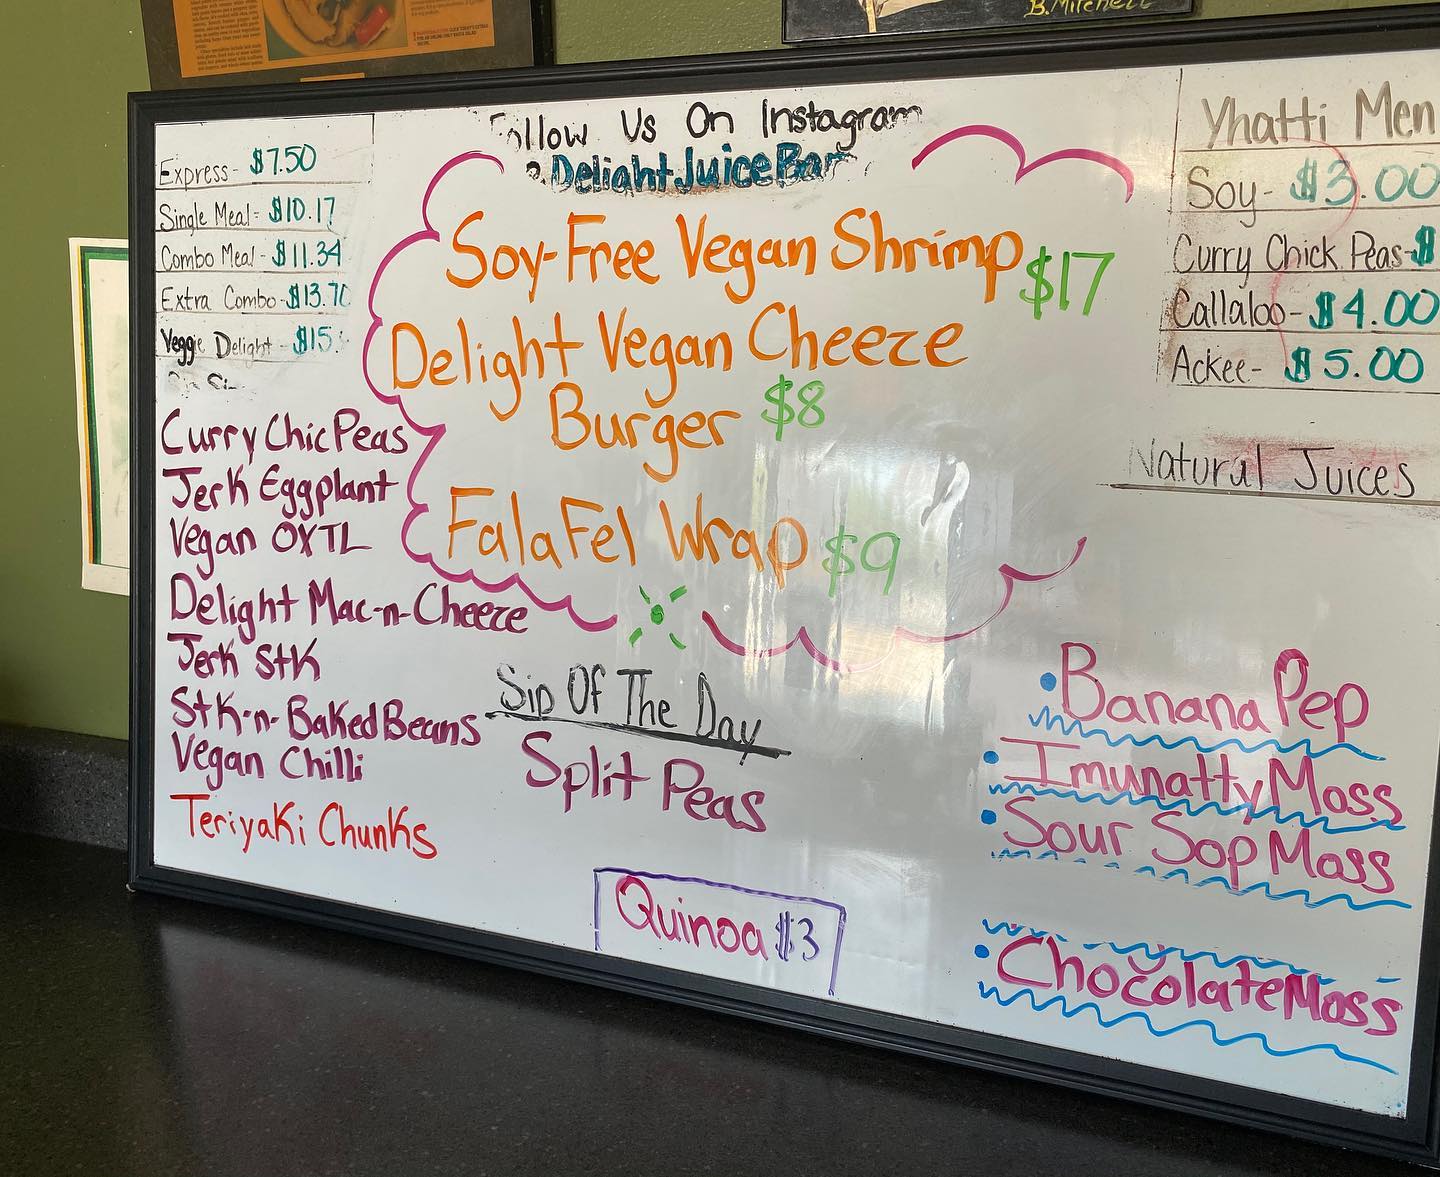 B. Mitchell
Follow Us On Instagram
DelightJuiceBar
Express- $7.50
Single Meal- $10.17
Combo Meal- $11.34
Extra Combo-$13.70
Veggie Delight - $15.
Curry ChicPeas
Jerk Eggplant
Vegan OXTL
Delight Mac-n-Cheeze
Jerk StK
StK-n-Baked Beans
Vegan Chilli
Teriyaki Chunks
Soy-Free Vegan Shrimp $17
Delight Vegan Cheeze
Burger $8
Falafel Wrap $9
Sip Of The Day
Split Peas
Quinoa $3
Yhatti Men
Soy- $3.00
Curry Chick Peas-$
Callaloo- $4.00
Ackee- $5.00
Natural Juices
•Banana Pep
•Imunatty Moss
•Sour Sop Moss
•Chocolate Moss